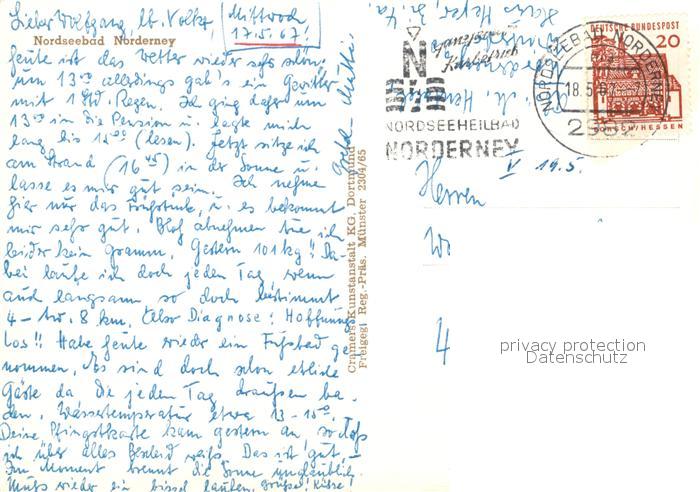 Lieber Wolfgang, lb. Volker, Mittwoch
17.5.67!
Nordseebad Norderney
heute ist das Wetter wieder sehr schön.
um 13⁰⁰ allerdings gab's ein Gewitter
mit 1 Std. Regen. Ich ging daher um
13⁰⁰ in die Pension u. legte mich
lang bis 15⁰⁰ (lesen). Jetzt sitze ich
am Strand (16⁴⁵) in der Sonne u.
lasse es mir gut sein. Ich nehme
hier nur das Frühstück, u. es bekommt
mir sehr gut. Bloß abnehmen tue ich
leider kein Gramm. Gestern 101 kg!! Da-
bei laufe ich doch jeden Tag wenn
auch langsam so doch bestimmt
4 - 8 km. Also Diagnose: Hoffnungs
los!! Habe heute wieder ein Fußbad ge
nommen. Es sind doch schon etliche
Gäste da, die jeden Tag draußen ba-
den. Wassertemperatur etwa 13 - 15⁰⁰.
Deine Pfingstkarte kam gestern an, so daß
ich über alles Bescheid weiß. Das ist gut.
Im Moment brennt die Sonne unglaublich.
Muß wieder ein bissel laufen. Grüße! Küsse!
Cramers Kunstanstalt KG. Dortmund
Freigegl Reg.-Präs. Münster 2304/65
ganzjährig
Kurbetrieb
N
NORDSEEHEILBAD
NORDERNEY
NORDSEEBAD NORDERNEY
18.5.67
DEUTSCHE BUNDESPOST
20
LORSCH/HESSEN
V 19.5.
Herren
4
privacy protection
Datenschutz